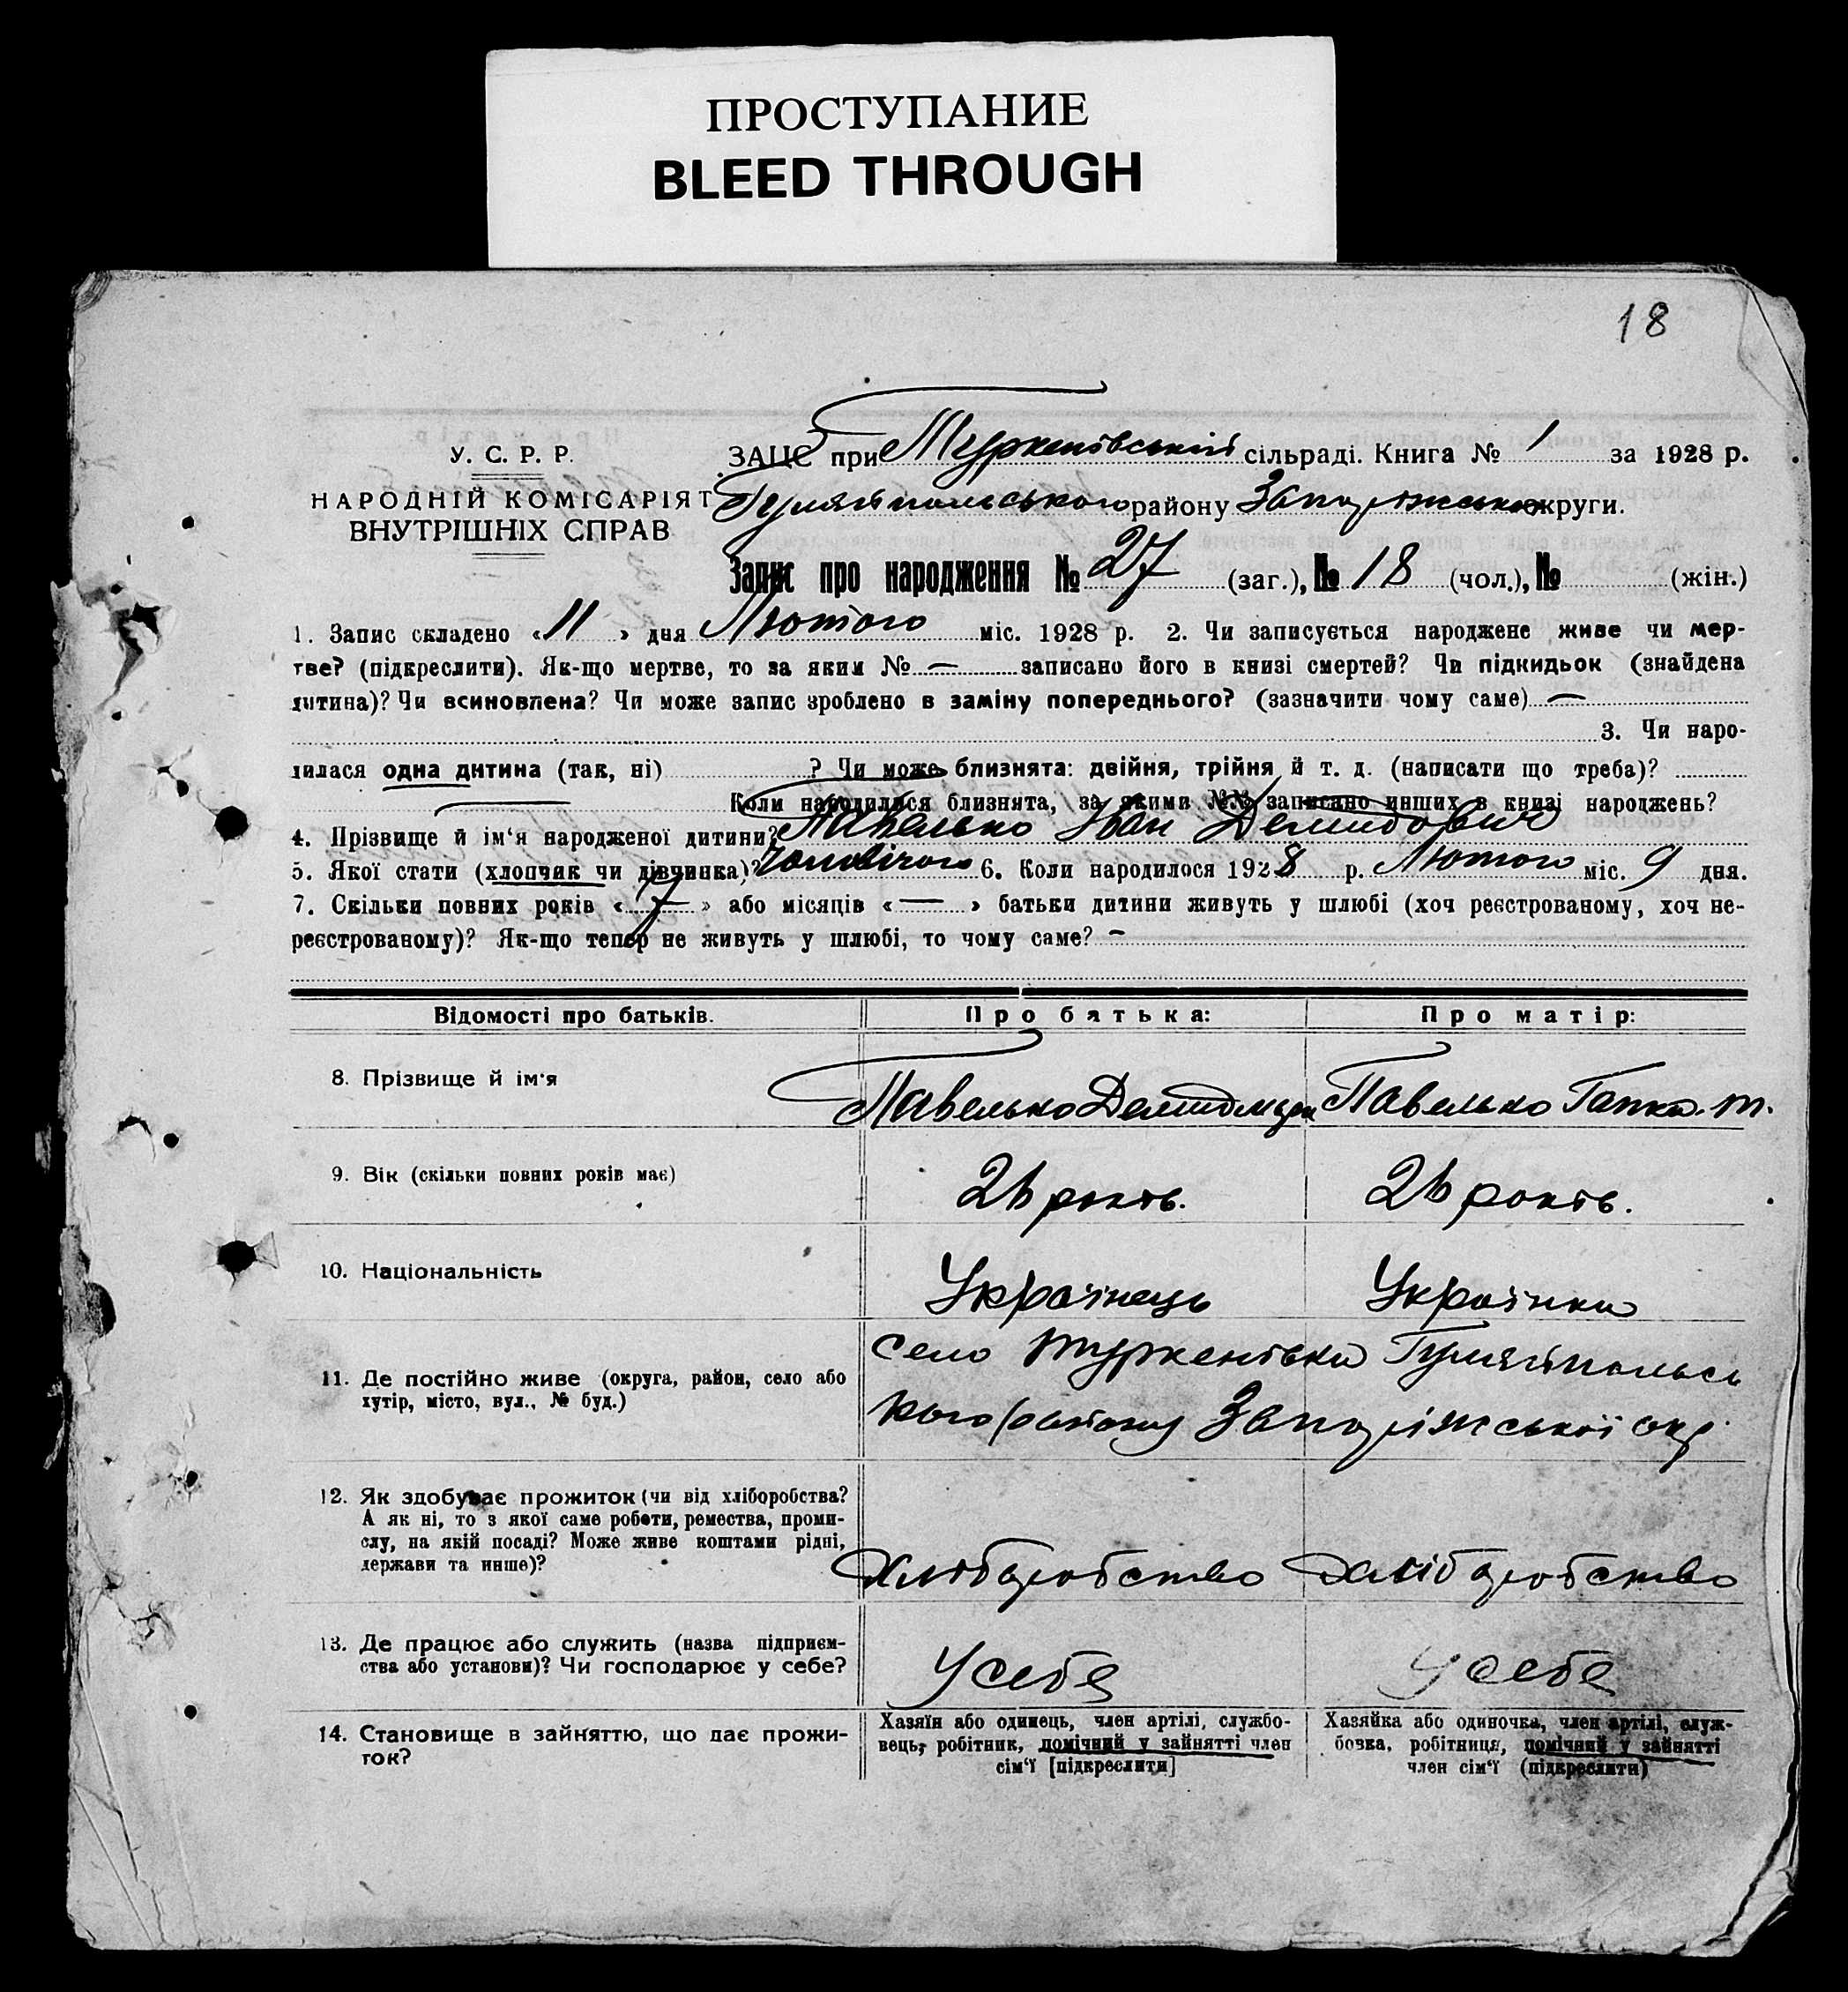 ПРОСТУПАНИЕ
BLEED THROUGH
18
У. С. Р. Р.
НАРОДНІЙ КОМІСАРІЯТ
ВНУТРІШНІХ СПРАВ
ЗАЦС при Туркенівській сільраді. Книга № 1 за 1928 р.
Гуляйпольського району Запоріжської округи.
Запис про народження № 27 (заг.), № 18 (чол.), № (жін.)
1. Запис складено «11» дня Лютого міс. 1928 р. 2. Чи записується народжене живе чи мер-
тве? (підкреслити). Як-що мертве, то за яким № — записано його в книзі смертей? Чи підкидьок (знайдена
дитина)? Чи всиновлена? Чи може запис зроблено в заміну попереднього? (зазначити чому саме) —
3. Чи наро-
дилася одна дитина (так, ні) ? Чи може близнята: двійня, трійня й т. д. (написати що треба)?
Коли народилися близнята, за якими №№ записано инших в книзі народжень?
4. Прізвище й ім‘я народженої дитини? Павелько Іван Демидович
5. Якої стати (хлопчик чи дівчинка)? Чоловічого 6. Коли народилося 1928 р. Лютого міс. 9 дня.
7. Скільки повних років «7» або місяців «—» батьки дитини живуть у шлюбі (хоч реєстрованому, хоч не-
реєстрованому)? Як-що тепер не живуть у шлюбі, то чому саме? —
Відомості про батьків. Про батька: Про матір:
8. Прізвище й ім‘я Павелько Демид Павелько Гапка. т.
9. Вік (скільки повних років має) 26 років. 26 років.
10. Національність Українець Українка
11. Де постійно живе (округа, район, село або
хутір, місто, вул., № буд.)
село Туркенівка Гуляйпольсь
кого району Запоріжської окр.
12. Як здобуває прожиток (чи від хліборобства?
А як ні, то з якої саме роботи, ремества, проми-
слу, на якій посаді? Може живе коштами рідні,
держави та инше)?
Хліборобство Хліборобство
13. Де працює або служить (назва підприєм-
ства або установи)? Чи господарює у себе?
У себе У себе
14. Становище в зайняттю, що дає прожи-
ток?
Хазяїн або одинець, член артілі, службо-
вець, робітник, помічний у зайнятті член
сім‘ї [підкреслити]
Хазяйка або одиночка, член артілі, служ-
бовка, робітниця, помічний у зайнятті
член сім‘ї (підкреслити)